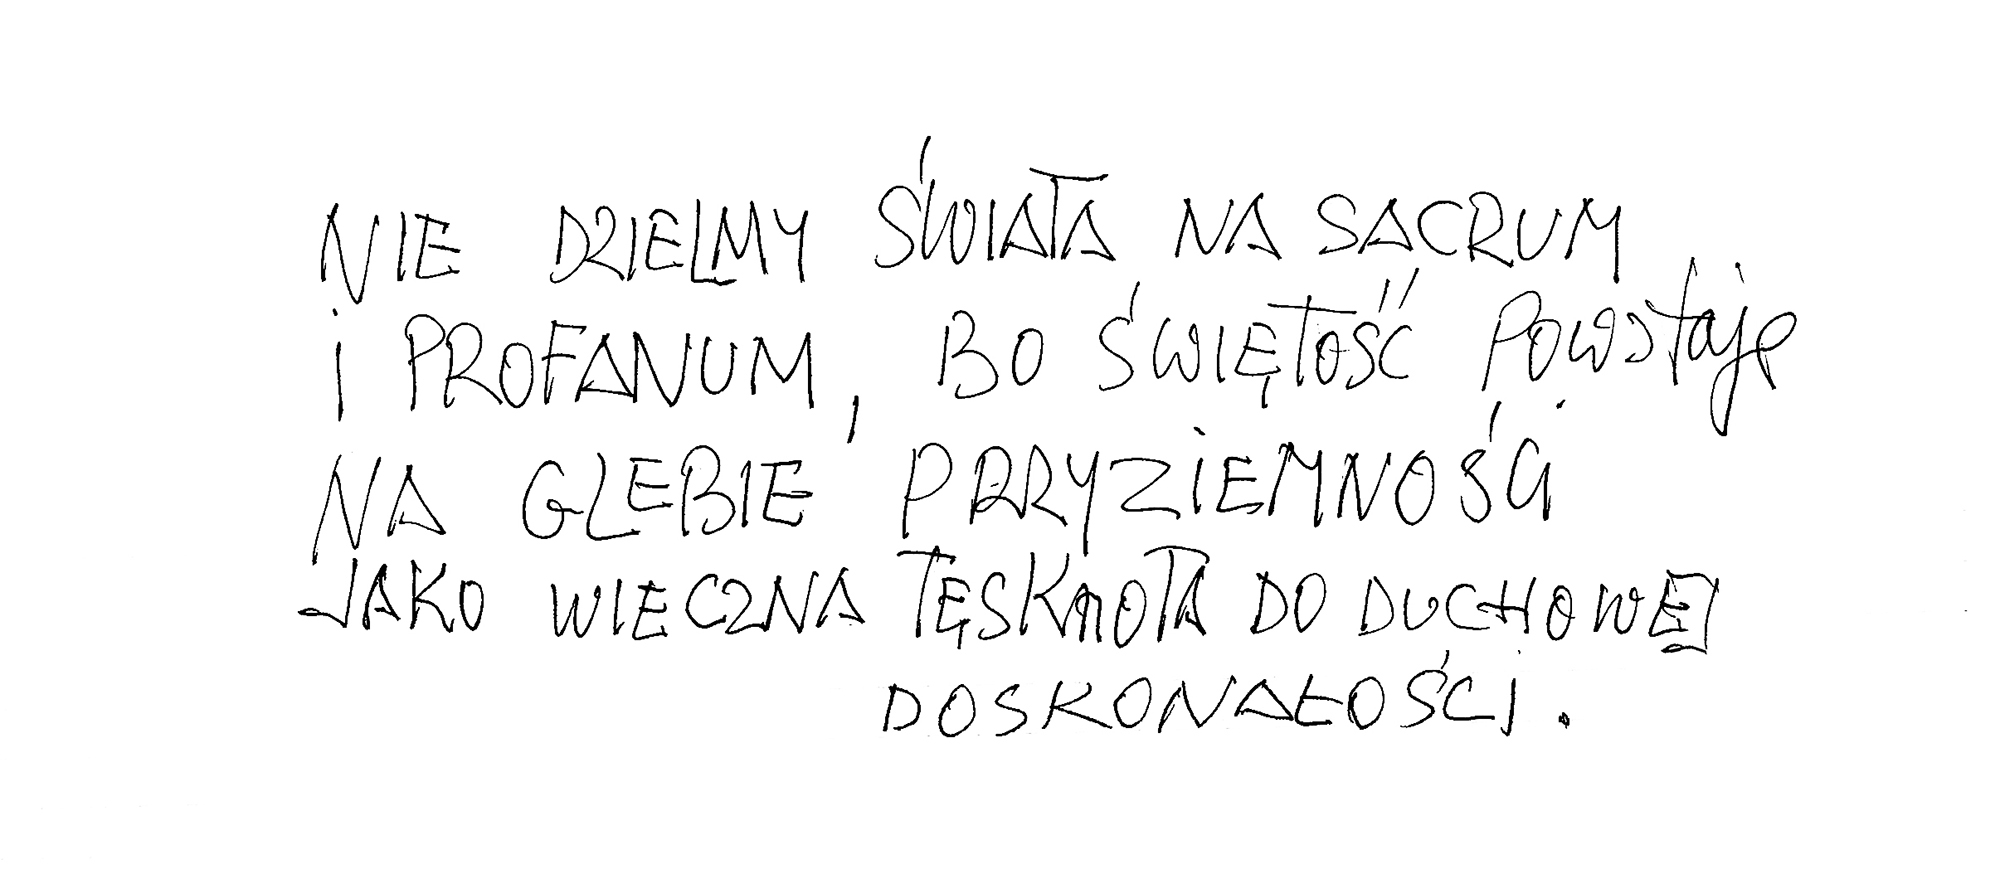 NIE DZIELMY ŚWIATA NA SACRUM
I PROFANUM, BO ŚWIĘTOŚĆ Powstaje
NA GLEBIE PRZYZIEMNOŚCI
JAKO WIECZNA TĘSKNOTA DO DUCHOWEJ
DOSKONAŁOŚCI.